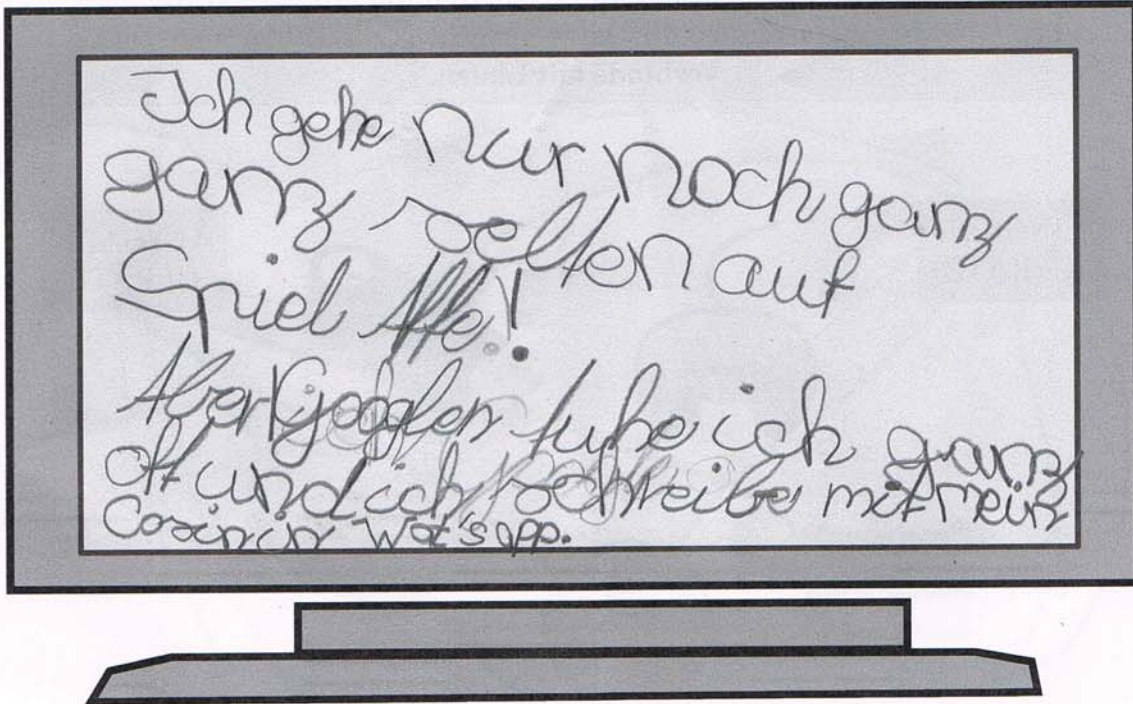 Ich gehe nur noch ganz
ganz selten auf
Spiel Affe!
Aber Googlen tuhe ich ganz
oft und ich schreibe mit mein
Cosin in Wat'sapp.